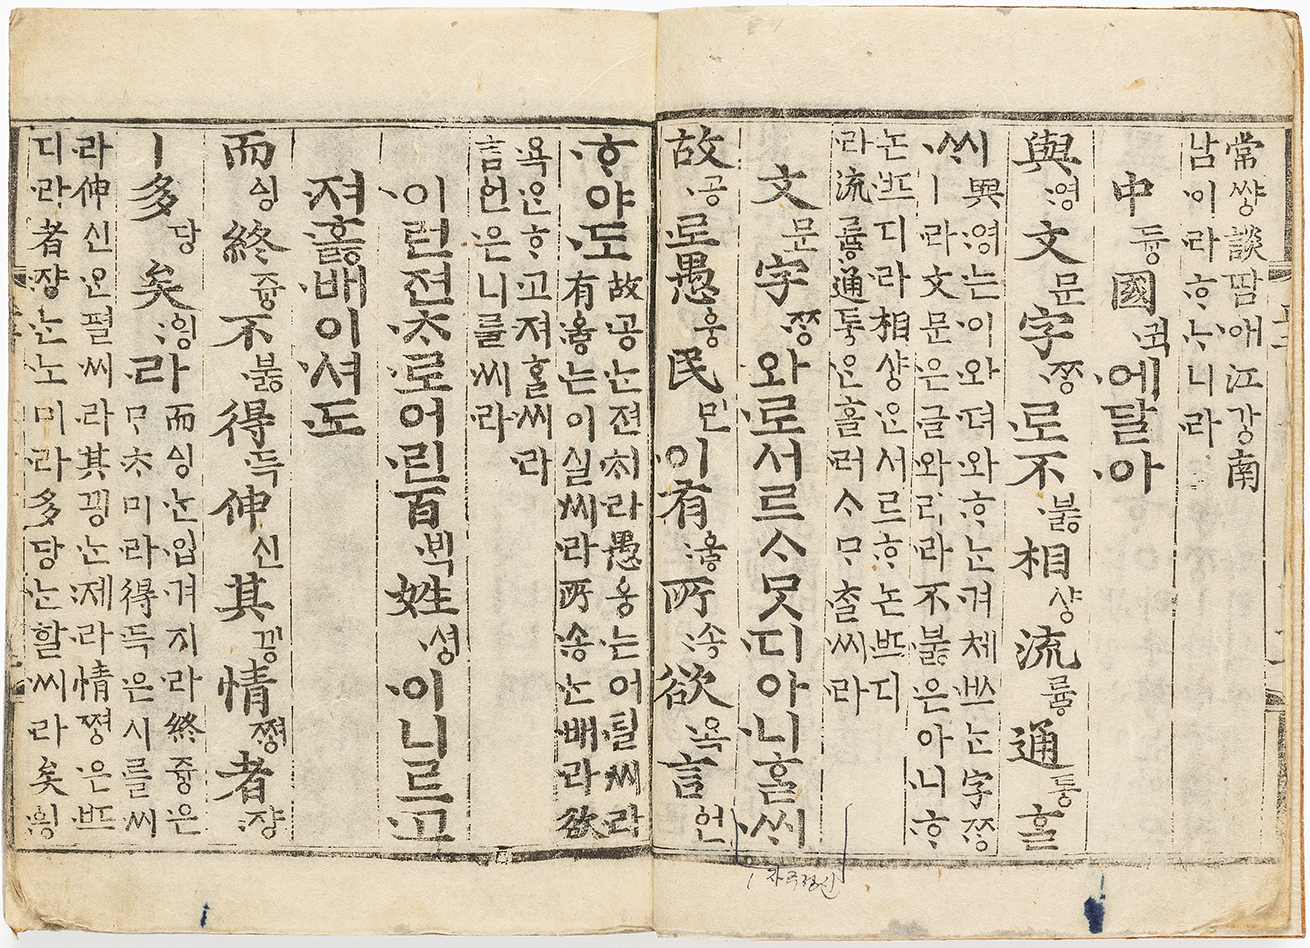 常쌰ᇰ談땀애江가ᇰ南
남이라ᄒᆞᄂᆞ니라
中듀ᇰ國귁에달아
與영文문字ᄍᆞᆼ로不부ᇙ相샤ᇰ流류ᇢ通토ᇰᄒᆞᆯ
ᄊᆡ
與영는이와뎌와ᄒᆞᄂᆞᆫ겨체ᄡᅳᄂᆞᆫ字ᄍᆞᆼ
ㅣ라文문은글와리라不부ᇙ은아니ᄒᆞ
논ᄠᅳ디라相샤ᇰᄋᆞᆫ서르ᄒᆞ논ᄠᅳ디
라流류ᇢ通토ᇰᄋᆞᆫ흘러ᄉᆞᄆᆞᄎᆞᆯ씨라
文문字ᄍᆞᆼ와로서르ᄉᆞᄆᆞᆺ디아니ᄒᆞᆯᄊᆡ
故공로愚ᅌᅮᆼ民민이有우ᇢ所송欲욕言언
ᄒᆞ야도
故공ᄂᆞᆫ젼ᄎᆡ라愚ᅌᅮᆼ는어릴씨라
有우ᇢ는이실씨라所송ᄂᆞᆫ배라欲
욕ᄋᆞᆫᄒᆞ고져ᄒᆞᆯ씨라
言언은니를씨라
이런젼ᄎᆞ로어린百ᄇᆡᆨ姓셔ᇰ이니르고
져호ᇙ배이셔도
而ᅀᅵᆼ終쥬ᇰ不부ᇙ得득伸신其끵情쪄ᇰ者쟝
ㅣ多당矣ᅌᅴᆼ라
而ᅀᅵᆼᄂᆞᆫ입겨지라終쥬ᇰ은
ᄆᆞᄎᆞ미라得득은시를씨
라伸신ᄋᆞᆫ펼씨라其끵ᄂᆞᆫ제라情쪄ᇰ은ᄠᅳ
디라者쟝ᄂᆞᆫ노미라多당ᄂᆞᆫ할씨라矣ᅌᅴᆼ
자주정신